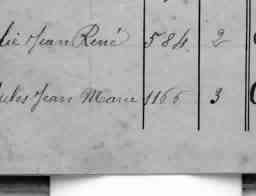 Jean René 584 2
Jules Jean Marie 1166 3